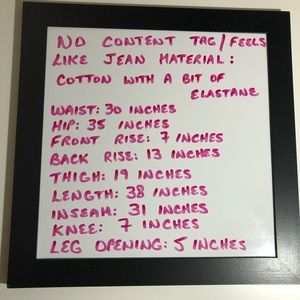 NO CONTENT TAG/FEELS
LIKE JEAN MATERIAL:
COTTON WITH A BIT OF
ELASTANE
WAIST: 30 INCHES
HIP: 35 INCHES
FRONT RISE: 7 INCHES
BACK RISE: 13 INCHES
THIGH: 19 INCHES
LENGTH: 38 INCHES
INSEAM: 31 INCHES
KNEE: 7 INCHES
LEG OPENING: 5 INCHES